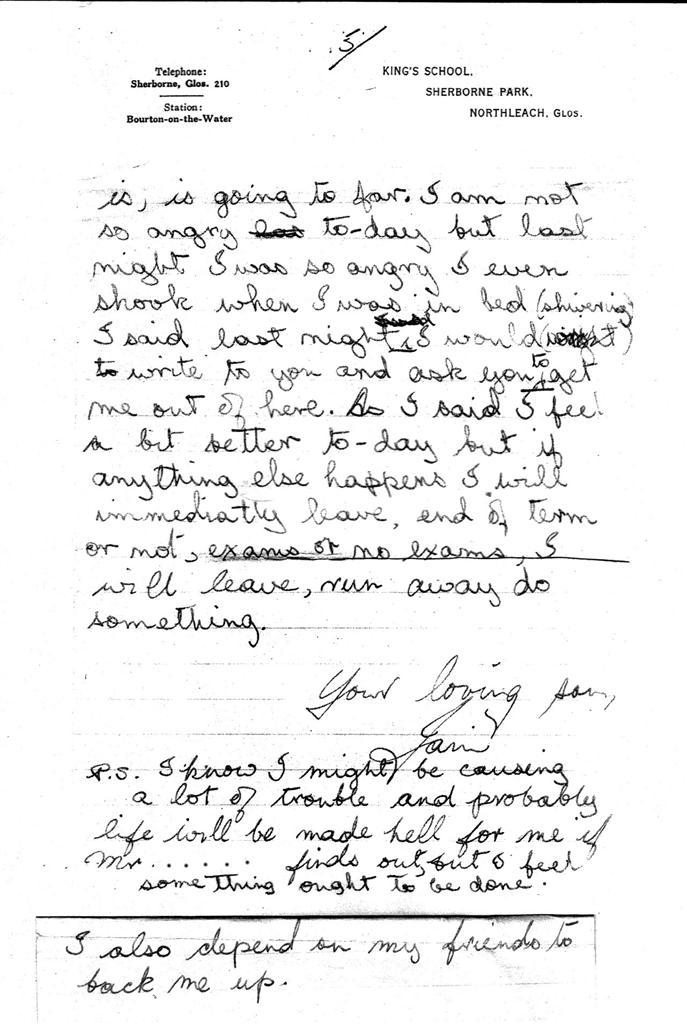 5/
Telephone:
Sherborne, Glos. 210
Station:
Bourton-on-the-Water
KING'S SCHOOL,
SHERBORNE PARK,
NORTHLEACH, GLOS.
is, is going to far. I am not
so angry to-day but last
night I was so angry I even
shook when I was in bed (shivering)
I said last night I would
to write to you and ask you to get
me out of here. As I said I feel
a bit better to-day but if
anything else happens I will
immediatly leave, end of term
or not, exams or no exams, I
will leave, run away do
something.
Your loving son,
P.S. I know I might be causing
a lot of trouble and probably
life will be made hell for me if
Mr ...... finds out, but I feel
something ought to be done.
I also depend on my friends to
back me up.